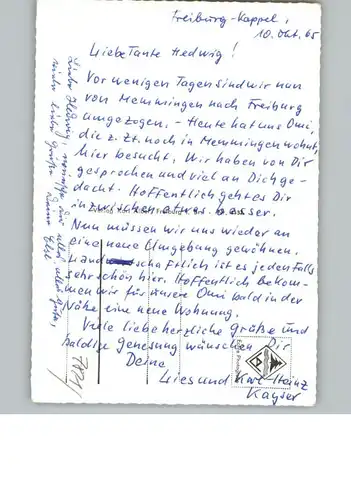 Freiburg-Kappel,
10. Okt. 65
Liebe Tante Hedwig!
Vor wenigen Tagen sind wir nun
von Memmingen nach Freiburg
umgezogen. - Heute hat uns Omi,
die z. Zt. noch in Memmingen wohnt,
hier besucht. Wir haben von Dir
gesprochen und viel an Dich ge-
dacht. Hoffentlich geht es Dir
inzwischen etwas besser.
Nun müssen wir uns wieder an
eine neue Umgebung gewöhnen.
Landschaftlich ist es jedenfalls
sehr schön hier. Hoffentlich bekom-
men wir für unsere Omi bald in der
Nähe eine neue Wohnung.
Viele liebe herzliche Grüße und
baldige Genesung wünschen Dir
Deine
Lies und Karl-Heinz
Kayser
Liebe Hedwig,